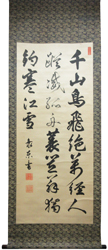 千山鳥飛絶萬径人
蹤滅孤舟蓑笠翁獨
釣寒江雪